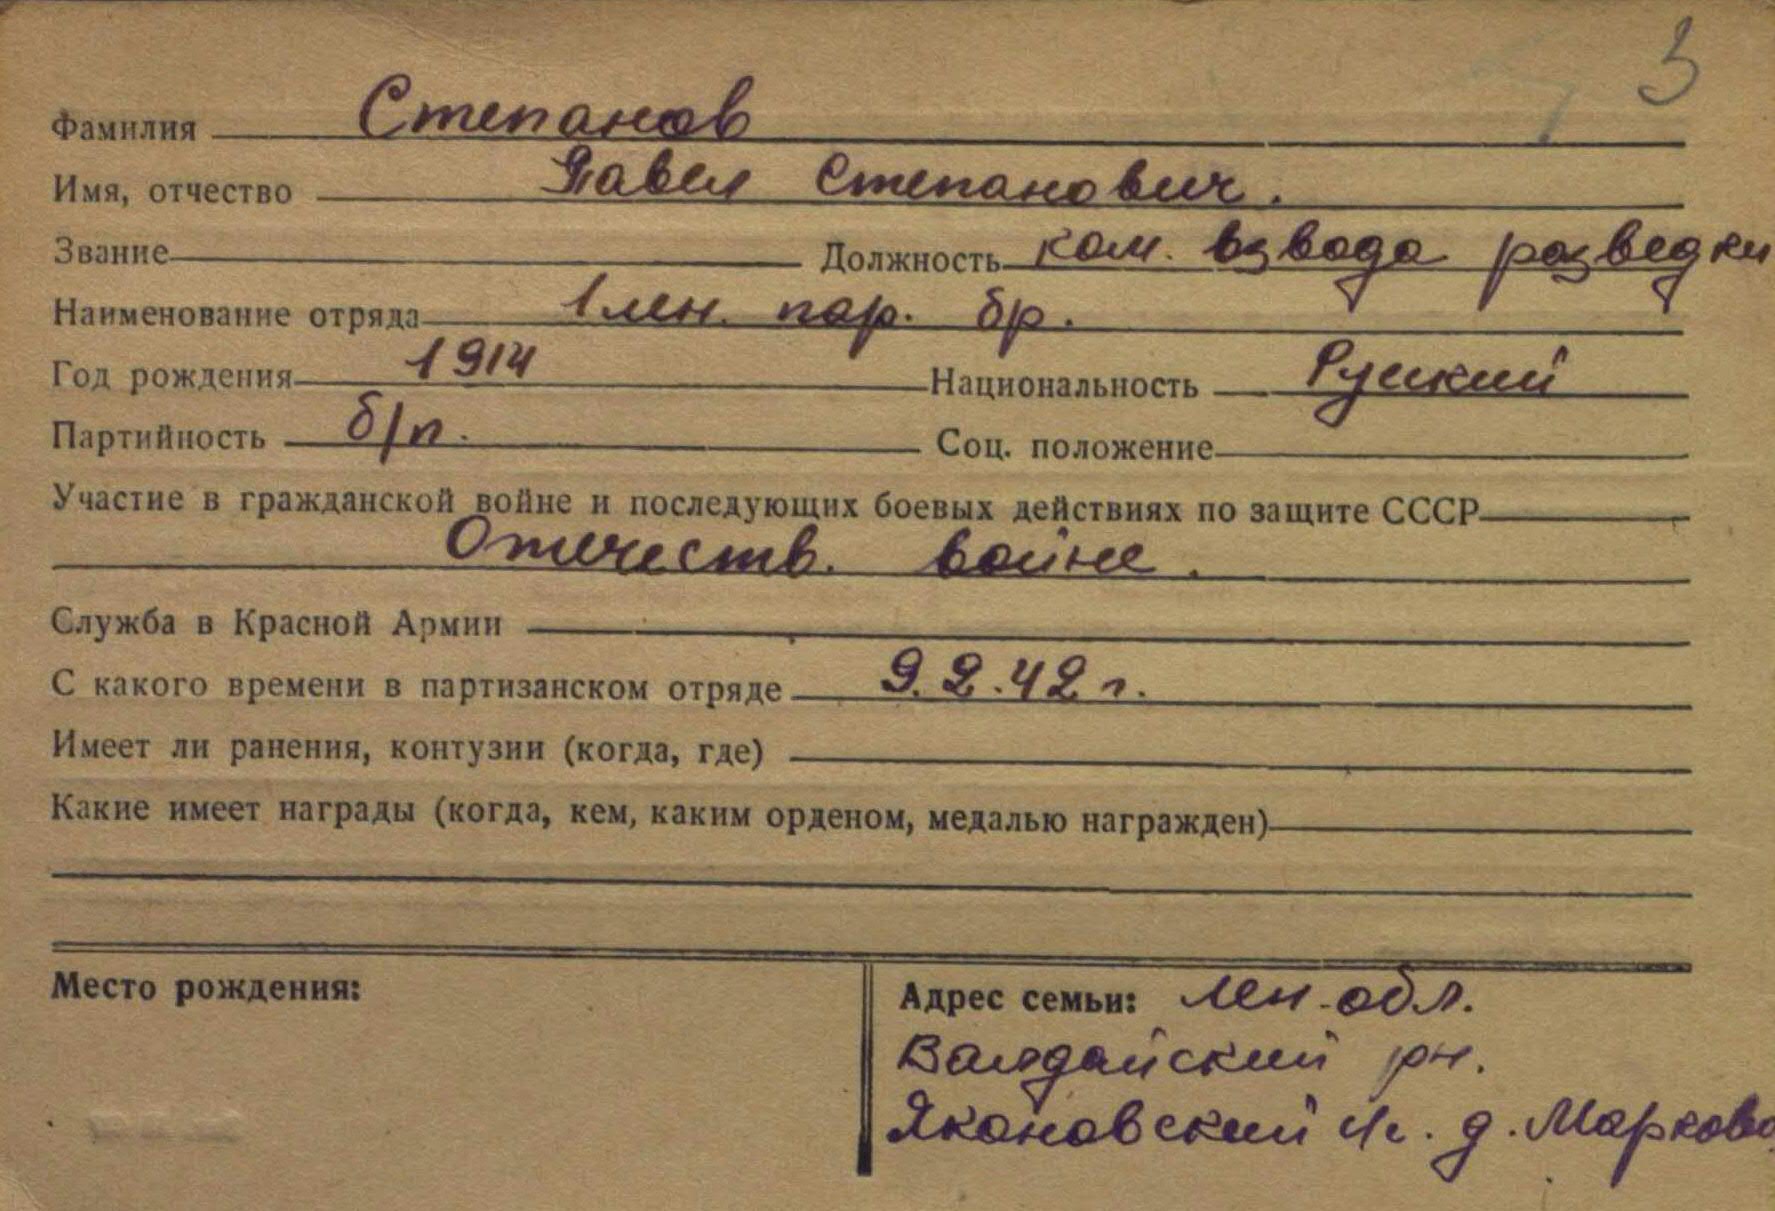 3
Фамилия Степанов
Имя, отчество Павел Степанович.
Звание Должность ком. взвода разведки
Наименование отряда 1 лен. пар. бр.
Год рождения 1914 Национальность Русский
Партийность б/п. Соц. положение
Участие в гражданской войне и последующих боевых действиях по защите СССР
Отечеств. войне.
Служба в Красной Армии
С какого времени в партизанском отряде 9.2.42 г.
Имеет ли ранения, контузии (когда, где)
Какие имеет награды (когда, кем, каким орденом, медалью награжден)
Место рождения:
Адрес семьи: Лен. обл.
Валдайский рн.
Яконовский д. Марково